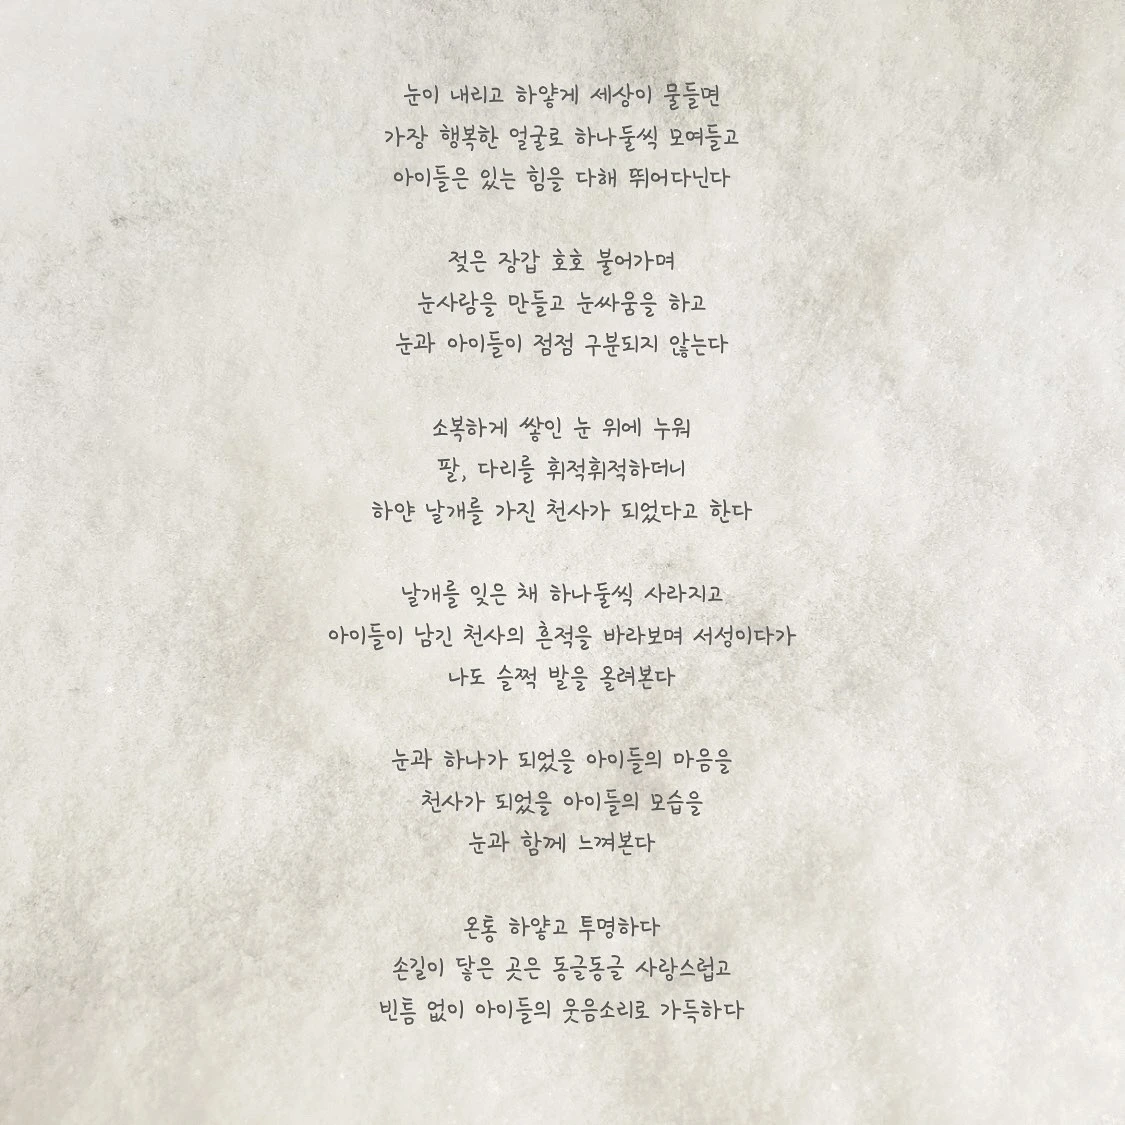 눈이 내리고 하얗게 세상이 물들면
가장 행복한 얼굴로 하나둘씩 모여들고
아이들은 있는 힘을 다해 뛰어다닌다
젖은 장갑 호호 불어가며
눈사람을 만들고 눈싸움을 하고
눈과 아이들이 점점 구분되지 않는다
소복하게 쌓인 눈 위에 누워
팔, 다리를 휘적휘적하더니
하얀 날개를 가진 천사가 되었다고 한다
날개를 잊은 채 하나둘씩 사라지고
아이들이 남긴 천사의 흔적을 바라보며 서성이다가
나도 슬쩍 발을 올려본다
눈과 하나가 되었을 아이들의 마음을
천사가 되었을 아이들의 모습을
눈과 함께 느껴본다
온통 하얗고 투명하다
손길이 닿은 곳은 동글동글 사랑스럽고
빈틈 없이 아이들의 웃음소리로 가득하다